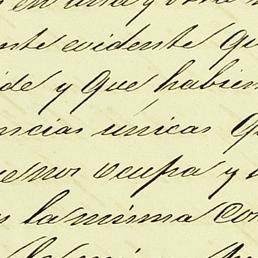 en una y otra
nte evidente qu
ide y que habien
ncias únicas q
e nos ocupa y
s la misma con